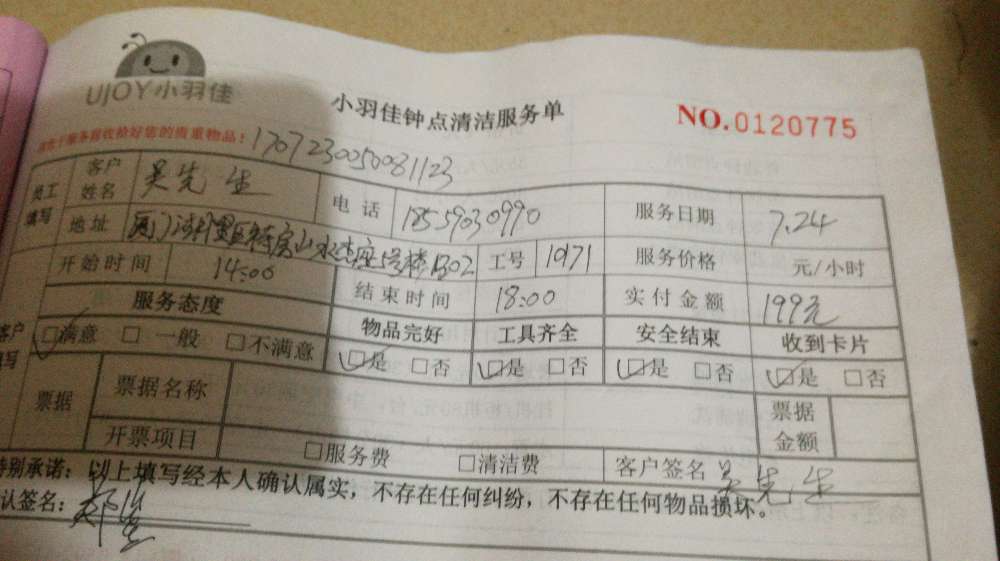 UJOY小羽佳
小羽佳钟点清洁服务单
NO.0120775
服务前收拾好您的贵重物品!
1707230050081123
员工填写 客户姓名 吴先生 电话 18559030990 服务日期 7.24
地址 工号 10171 服务价格 元/小时
开始时间 14:00 结束时间 18:00 实付金额 199元
服务态度 物品完好 工具齐全 安全结束 收到卡片
客户填写 ☑满意 □一般 □不满意 ☑是 □否 ☑是 □否 ☑是 □否 ☑是 □否
票据 票据名称 票据金额
开票项目 □服务费 □清洁费 客户签名 吴先生
特别承诺:以上填写经本人确认属实,不存在任何纠纷,不存在任何物品损坏。
认签名: